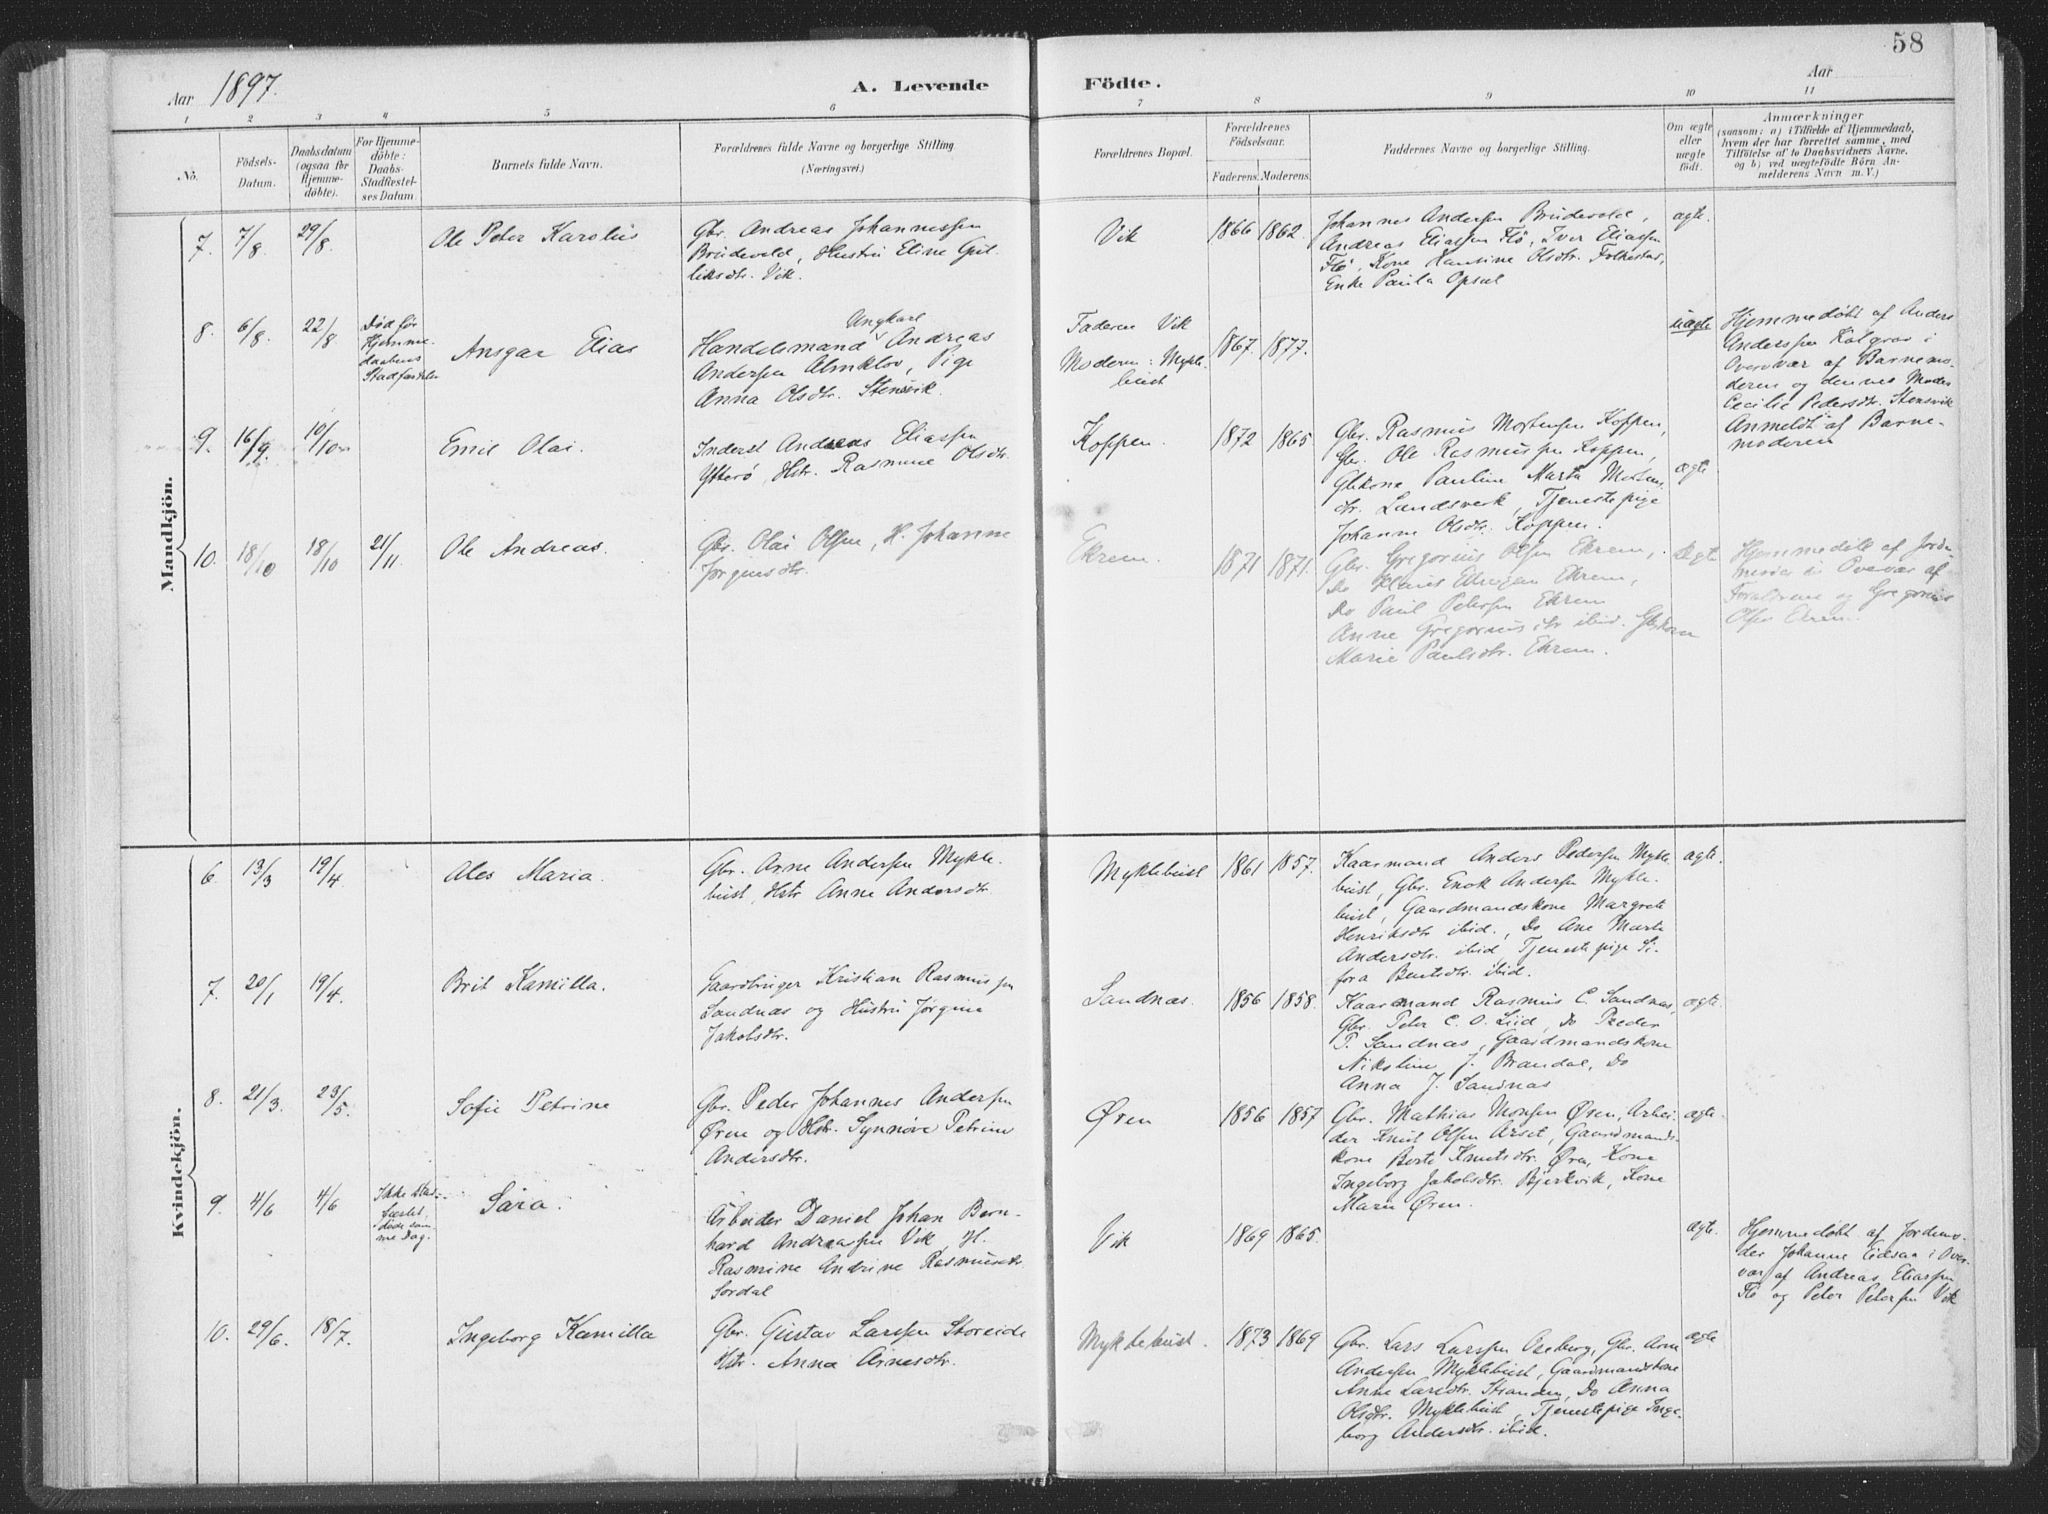 58
Aar 1897.
A. Levende
Födte.
Aar
1 2 3 4 5 6 7 8 9 10 11
No.
Födsels-
Datum.
Daabsdatum
(ogsaa for
Hjemme-
döbte).
For Hjemme-
döbte:
Daabs-
Stadfæstel-
ses Datum.
Barnets fulde Navn.
Forældrenes fulde Navne og borgerlige Stilling
(Næringsvei.)
Forældrenes Bopæl.
Forældrenes
Födselsaar.
Faderens. Moderens.
Faddernes Navne og borgerlige Stilling.
Om ægte
eller
uægte
födt.
Anmærkninger
(saasom: a) i Tilfælde af Hjemmedaab,
hvem der har forrettet samme, med
Tilföielse af to Daabsvidners Navne.
og b) ved uægtefödte Börn An-
melderens Navn m. V.)
Mandkjön.
7. 7/8 29/8
Ole Peter Karolus
Gbr. Andreas Johannessen
Brudevold, Hustru Eline Gul-
liksdtr. Vik.
Vik
1866 1862.
Johannes Andersen Brudevold,
Andreas Eliassen Flø, Iver Eliassen
Flø, Kone Hansine Olsdtr. Folkestad,
Enke Paula Opsal
ægte.
8. 6/8. 22/8
Død før
Hjemme-
daabens
Stadfæstelse
Ansgar Elias
Ungkarl
Handelsmand Andreas
Andersen Almklov, Pige
Anna Olsdtr. Stensvik.
Faderen Vik
Moderen: Mykle-
bust
1867. 1877.
uægte
Hjemmedøbt af Anders
Anderssen Kolgrov i
Overvær af Barnemo-
deren og dennes Moder
Cecilie Pedersdtr. Stensvik
Anmeldt af Barne-
moderen
9. 16/9. 10/10
Emil Olai.
Inderst Andreas Eliassen
Ytterø, Hstr. Rasmine Olsdtr.
Koppen.
1872 1865
Gbr. Rasmus Mortensen Koppen,
Gbr. Ole Rasmussen Koppen,
Gbkone Pauline Marta Motens-
dr. Landsverk, Tjenestepige
Johanne Olsdtr. Koppen.
ægte
10. 18/10 18/10 21/11
Ole Andreas.
Gbr. Olai Olsen, H. Johanne
Jørginsdtr.
Ekrem.
1871 1871.
Gbr. Gregorius Olsen Ekrem,
Do Ekrem,
Do Paul Petersen Ekrem
Anne Gregoriusdtr ibid. Gbkone
Marie Paulsdtr. Ekrem.
Ægte
Hjemmedøbt af Jorde-
moder i Overvær af
Forældrene og Gregorius
Olsen Ekrem.
Kvindekjön.
6. 13/3 19/4
Ales Maria.
Gbr. Arne Andersen Mykle-
bust, Hstr Anne Andersdtr.
Myklebust
1861 1857.
Kaarmand Anders Pedersen Mykle-
bust, Gbr. Enok Andersen Mykle-
bust, Gaardmandskone Margrete
Henriksdtr ibid., Do Ane Marta
Andersdtr. ibid, Tjenestepige Si-
fora Bentsdtr. ibid.
ægte.
7. 20/1 19/4.
Brit Kamilla.
Gaardbruger Kristian Rasmussen
Sandnæs og Hustru Jørgine
Jakobsdtr.
Sandnæs.
1856 1858.
Kaarmand Rasmus C. Sandnæs,
Gbr. Peter C. O. Liid, Do Peder
P. Sandnæs, Gaardmandskone
Nikoline J. Brandal, Do
Anna J. Sandnæs
ægte.
8. 21/3. 23/5.
Sofie Petrine
Gbr. Peder Johannes Andersen
Øren og Hstr. Synnøve Petrine
Andersdtr.
Øren
1856 1857
Gbr. Mathias Monsen Øren, Arbei-
der Knut Olsen Arset, Gaardmands-
kone Berte Knutsdtr. Øren, Kone
Ingeborg Jakobsdtr. Bjerkvik, Kone
Maren Øren.
ægte.
9. 4/6 4/6
Ikke stad-
fæstet
døde sam-
me Dag.
Sara.
Arbeider Daniel Johan Bern-
hard Andreassen Vik, H.
Rasmine Andrine Rasmusdtr.
Sørdal
Vik
1869 1865.
ægte.
Hjemmedøbt af Jordemo-
der Johanne Eidsaa i Over-
vær af Andreas Eliassen
Flø og Peter Petersen Vik
10. 29/6. 18/7.
Ingeborg Kamilla
Gbr. Gustav Larssen Storeide
Hstr. Anna Arnesdtr.
Myklebust.
1873 1869
Gbr. Lars Larssen Aseberg, Gbr. Arne
Andersen Myklebust, Gaardmandskone
Anne Larsdtr. Stranden, Do Anna
Olsdtr. Myklebust, Tjenestepige Inge-
borg Andersdtr. ibid.
ægte